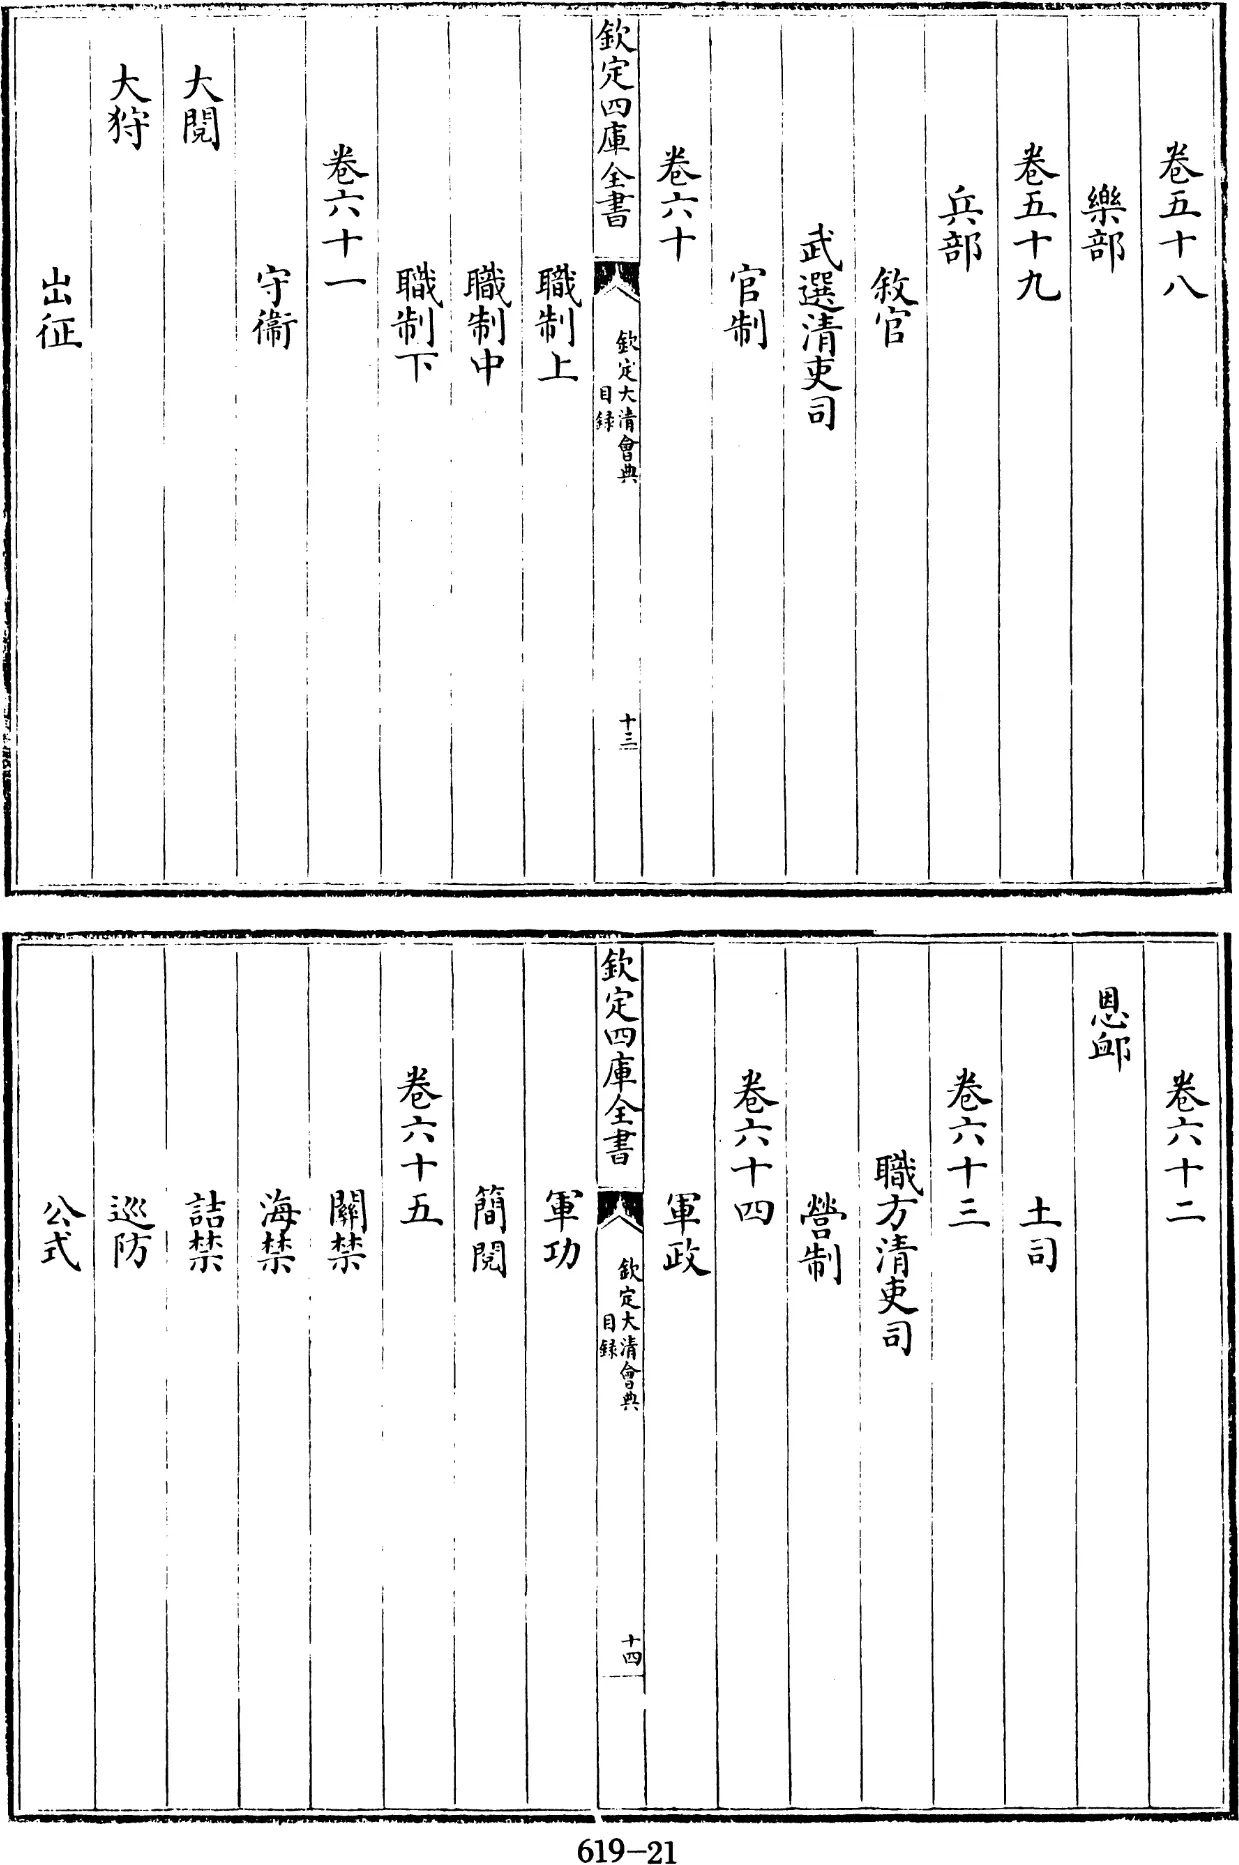 卷五十八
樂部
卷五十九
兵部
敘官
武選清吏司
官制
卷六十
欽定四庫全書
欽定大清會典
目録
十三
職制上
職制中
職制下
卷六十一
守衞
大閱
大狩
出征
卷六十二
恩䘏
土司
卷六十三
職方清吏司
營制
卷六十四
軍政
欽定四庫全書
欽定大清會典
目録
十四
軍功
簡閱
卷六十五
關禁
海禁
詰禁
巡防
公式
619-21